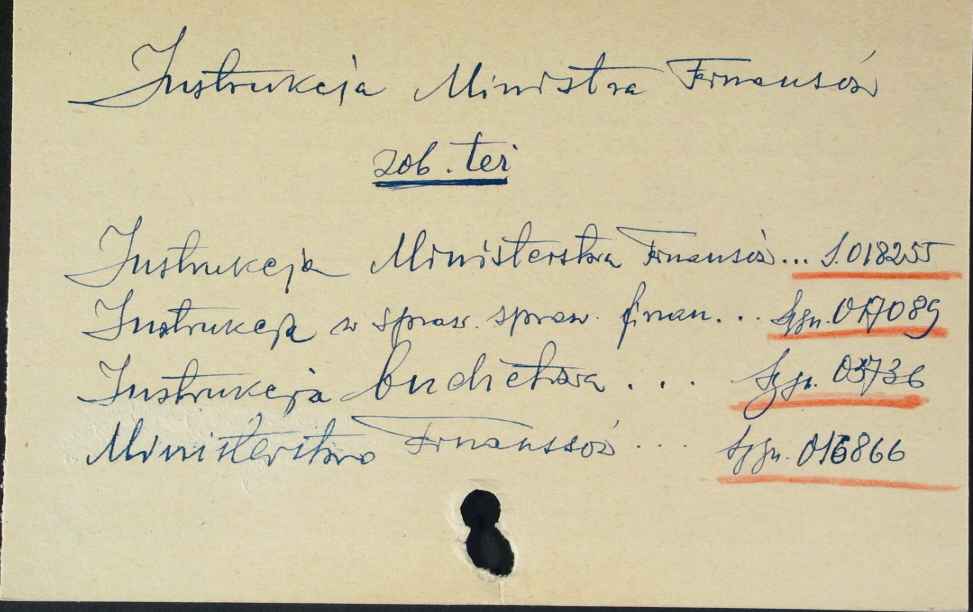 Instrukcja Ministra Finansów
zob. też
Instrukcja Ministerstwa Finansów... S. 018255
Instrukcja w spraw. spraw. finan... Sygn. 017089
Instrukcja budżetowa.... Sygn. 03736
Ministerstwo Finansów.... Sygn. 016866